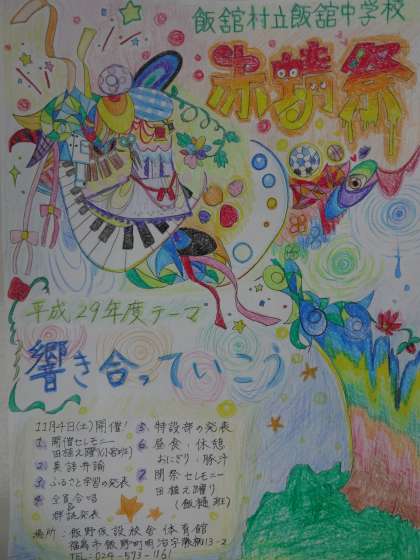 飯舘村立飯舘中学校
赤蜻祭
平成29年度テーマ
響き合っていこう
11月4日(土)開催!
1. 開催セレモニー
田植え踊り(小宮班)
2. 英語弁論
3. ふるさと学習の発表
4. 全員合唱
群読発表
5. 特設部の発表
6. 昼食・休憩
おにぎり・豚汁
7. 閉祭セレモニー
田植え踊り
(飯樋班)
場所:飯野仮設校舎体育館
福島市飯野町明治字
113-2
TEL:024-573-1161